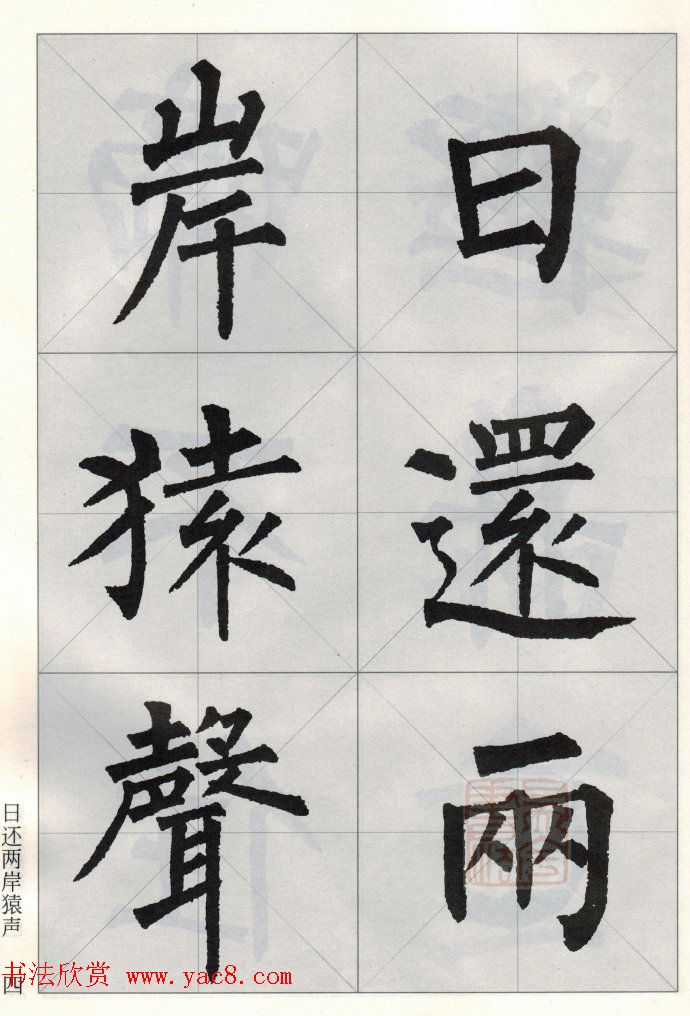 日還兩
岸猿聲
日还两岸猿声 四
书法欣赏 www.yac8.com